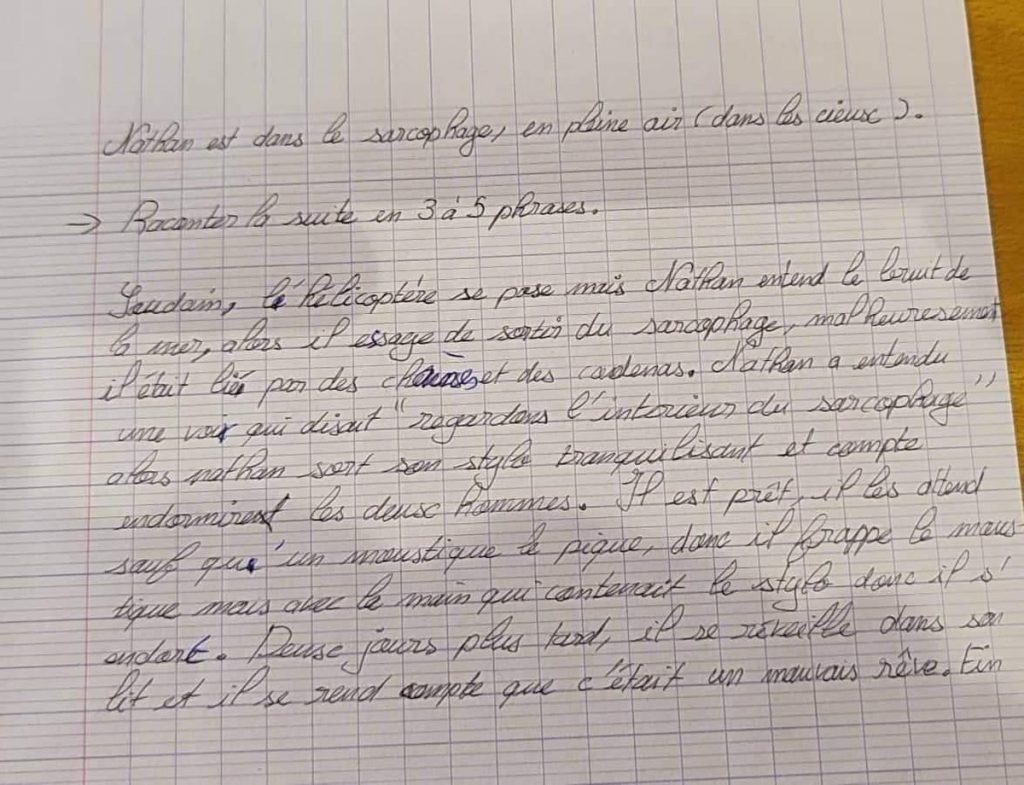 Nathan est dans le sarcophage, en plaine air (dans les cieux).
→ Raconter la suite en 3 à 5 phrases.
Soudain, l'hélicoptère se pose mais Nathan entend le bruit de
la mer, alors il essage de sortir du sarcophage, malheuresement
il était lié par des chaînes, et des cadenas. Nathan a entendu
une voix qui disait "regardons l'interieur du sarcophage"
alors nathan sort son stylo tranquilisant et compte
endormirent les deux hommes. Il est prêt, il les attend
sauf qu'un moustique le pique, donc il frappe le mous-
tique mais avec la main qui contenait le stylo donc il s'
endort. Deux jours plus tard, il se réveille dans son
lit et il se rend compte que c'était un mauvais rêve. Fin